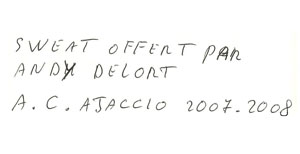 SWEAT OFFERT PAR
ANDY DELORT
A.C. AJACCIO 2007-2008